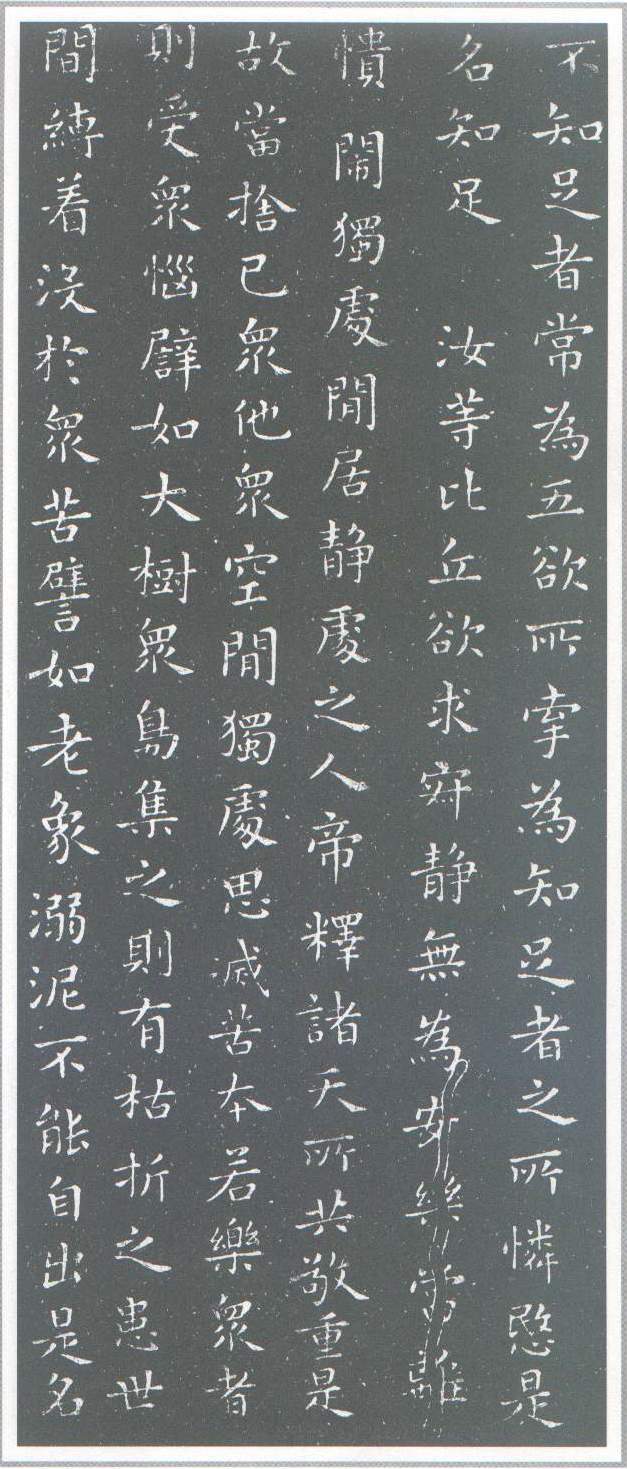 不知足者常為五欲所牽為知足者之所憐愍是
名知足 汝等比丘欲求寂静無為安樂當離
憒閙獨處閒居静處之人帝釋諸天所共敬重是
故當捨己眾他眾空閒獨處思滅苦本若樂眾者
則受眾惱譬如大樹眾鳥集之則有枯折之患世
間縛着没於眾苦譬如老象溺泥不能自出是名